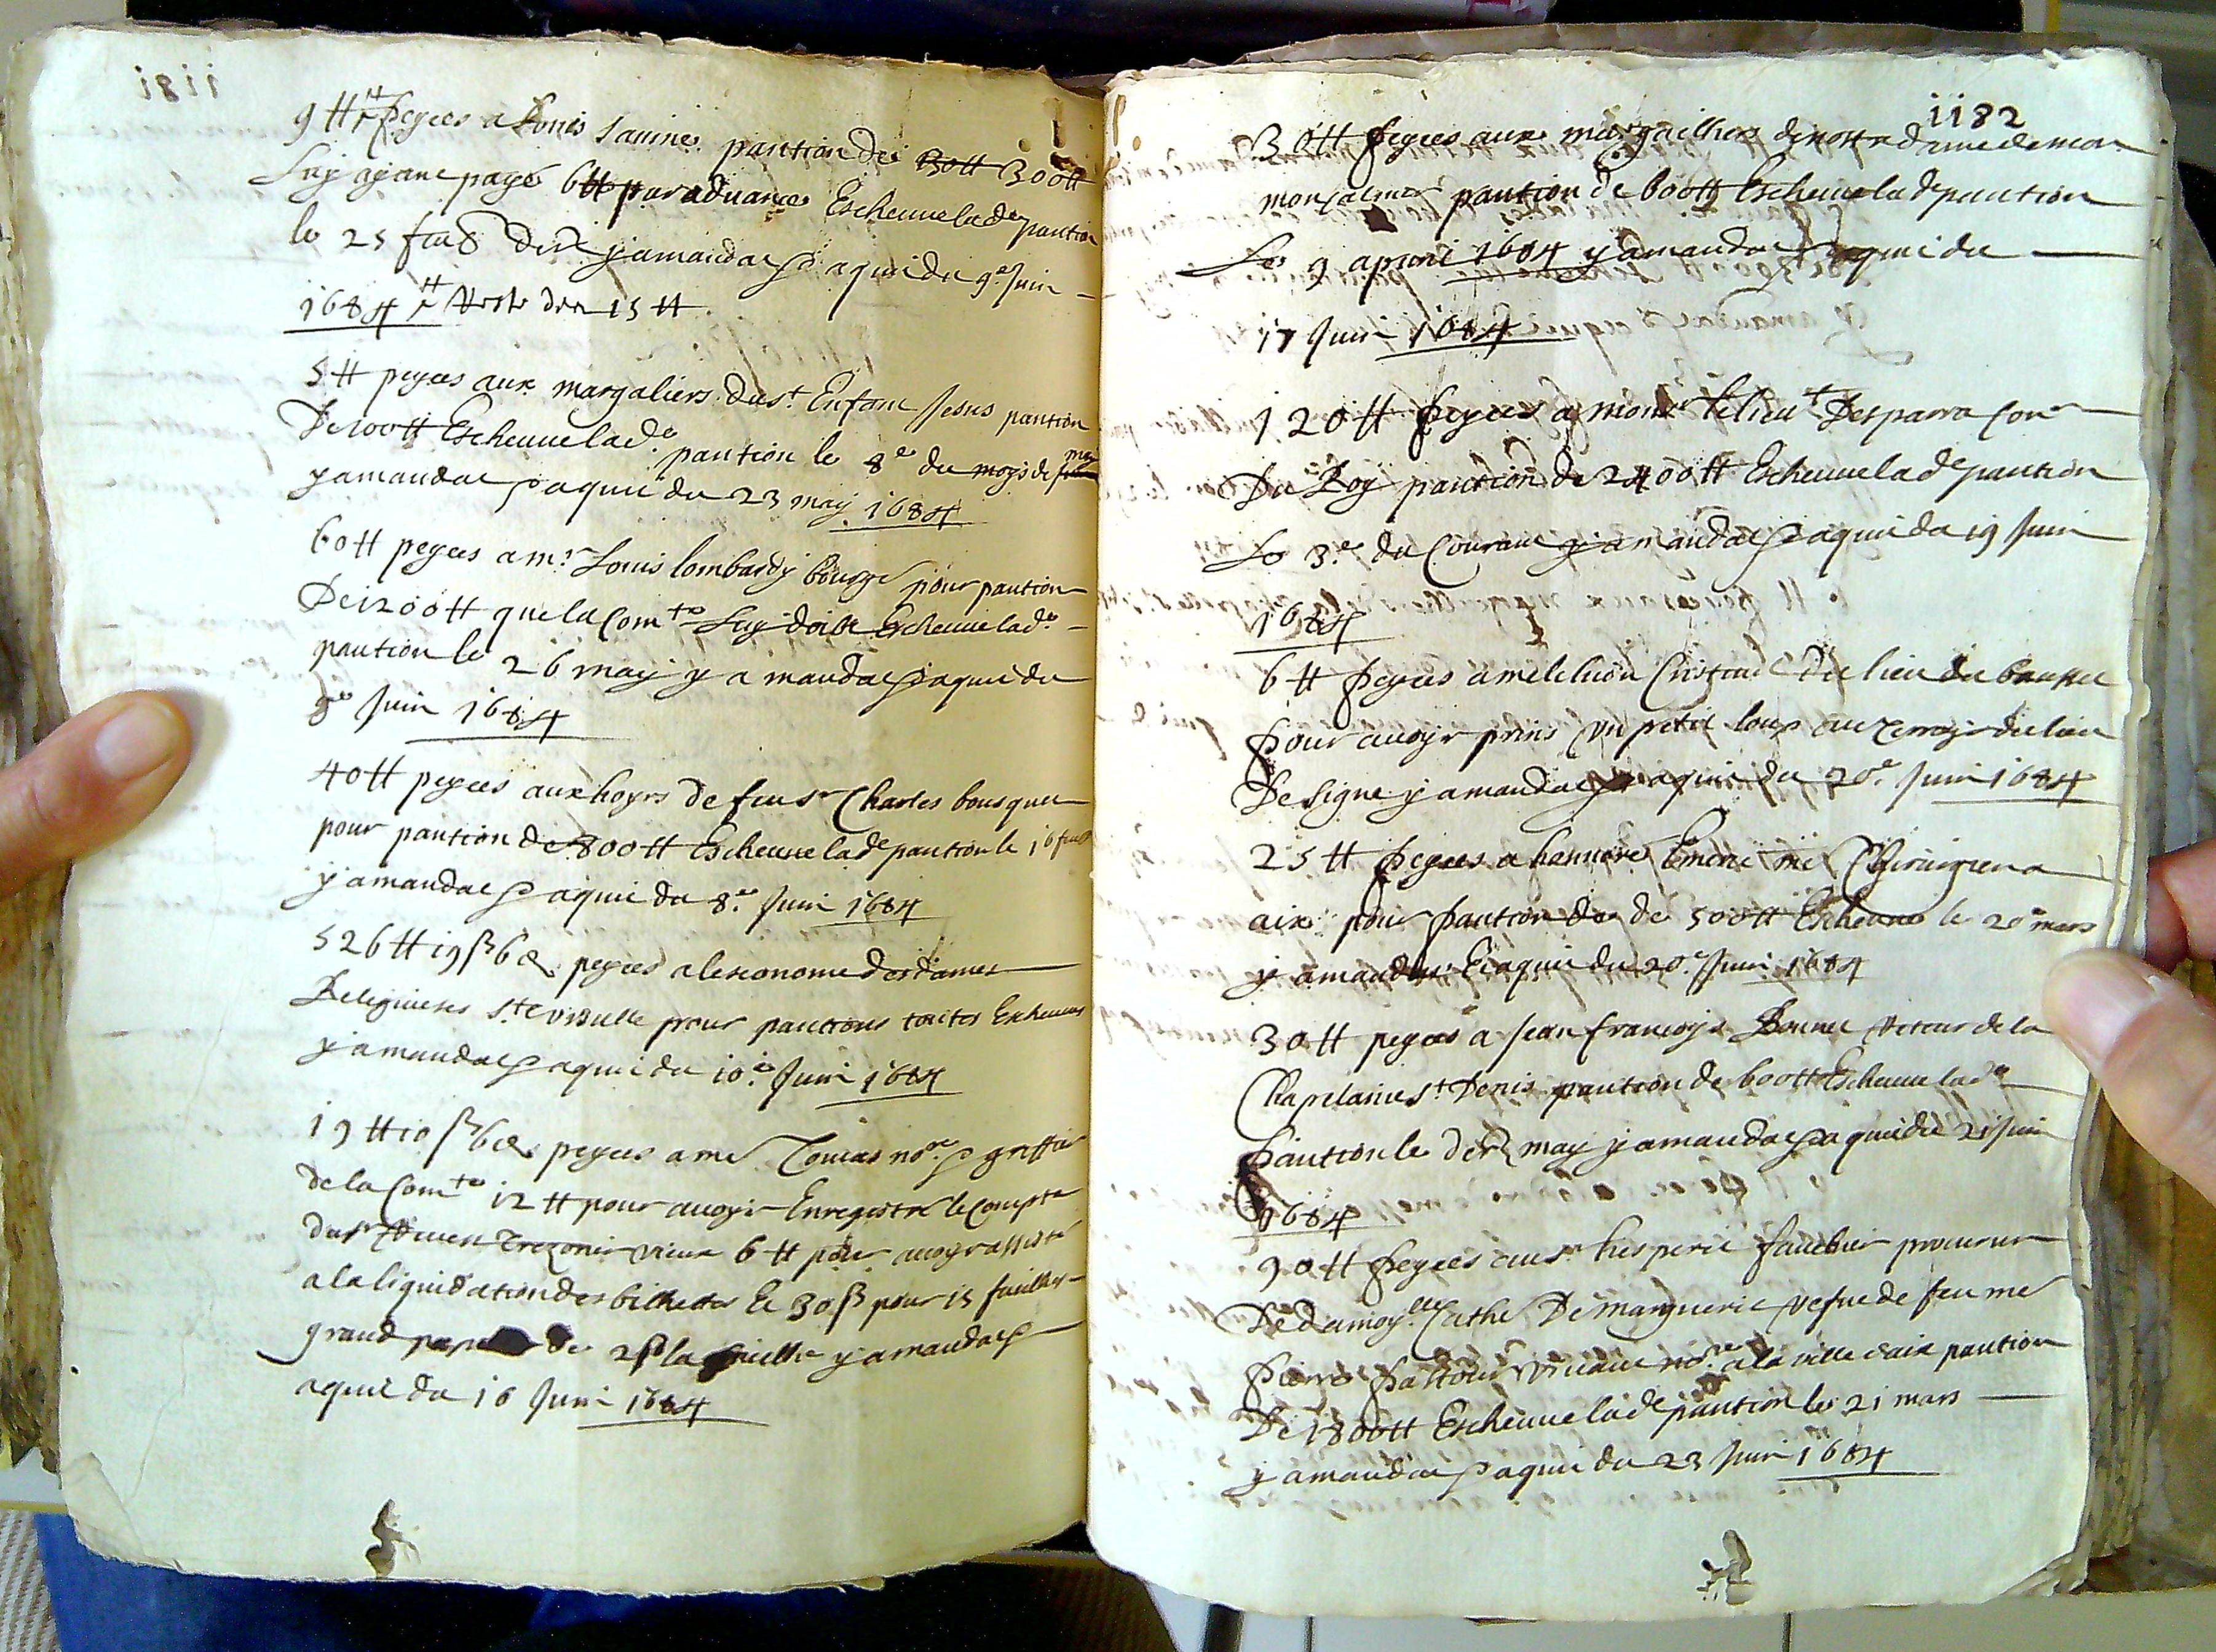 1181
9 tt peyées a Louis Sauine pantion de 30tt 300tt
Luy ayant payé 6tt par aduance Escheuue lade pantion
le 25 feub der y a mandat p aquit du 9e Juin
1684 Reste den 15 tt
5 tt peyees aux margaliers du st Enfant Jesus pantion
De 100tt Escheuue lade pantion le 8e du moys de may
y a mandat p aquit du 23 may 1684
60 tt peyees a mr Louis lombardy bourge pour pantion
De 1200tt que la Comte Luy doibt Escheuue lade
pantion le 26 may y a mandat p aquit du
Juin 1684
40 tt peyees aux hoyrs de feu sr Charles bousquet
pour pantion de 800tt Escheuue lade pantion le 16
y a mandat p aquit du 8e Juin 1684
526 tt 19 ß 6 d peyees a lesconome des dames
Religiuses ste vrsulle pour pantions toutes Escheues
y a mandat p aquit du 10e Juin 1684
19 tt 10 ß 6 d peyees a me Tomas nore p greffier
de la Comte 12 tt pour auoyr Enregistré le Compte
du sr trezorier vieux 6 tt pour auoyr assisté
a la liquidation des billettes Et 30 ß pour 15 fuilhes
grand papier de 2 ß la fuille y a mandat p
aquit du 16 Juin 1684
1182
30tt peyees aux margailhers de nostre dame de mon
monsalmer pantion de 600tt Escheuue lade pantion
Le 9 apuril 1684 y a mandat p aquit du
17 Juin 1684
120 tt peyees a monsr le lieut Desparra Conr
Du Roy pantion de 2400tt Escheuue lade pantion
Le 3e du Courant y a mandat p aquit du 19 Juin
1684
6 tt peyees a melchion Cristaud du lieu du bausset
pour auoyr prins vn petit loup au terroyr du lieu
De Signe y a mandat p aquit du 20e Juin 1684
25 tt peyees a honnore Emeric me Chirurgien a
aix pour pantion de de 500tt Escheuue le 20 mars
y a mandat Et aquit du 20e Juin 1684
30 tt peyees a Jean francoys Bonnet Retour de la
Chapelanie st Denis pantion de 600tt Escheuue lade
pantion le der may y a mandat p aquit du 21 Juin
1684
90 tt peyees au sr hesperit faucher procureur
De damoylle Cathe De marguerit vefue de feu me
pierre pastour viuant nore a la ville daix pantion
De 1800tt Escheuue lade pantion le 21 mars
y a mandat p aquit du 23 Juin 1684